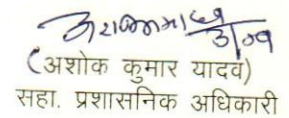 (अशोक कुमार यादव)
सहा. प्रशासनिक अधिकारी